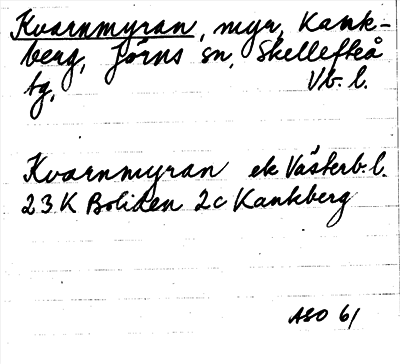 Kvarnmyran, myr, Kank-
berg, Jörns sn, Skellefteå
tg, Vb. l.
Kvarnmyran ek Västerb. l.
23 K Boliden 2c Kankberg
ASO 61